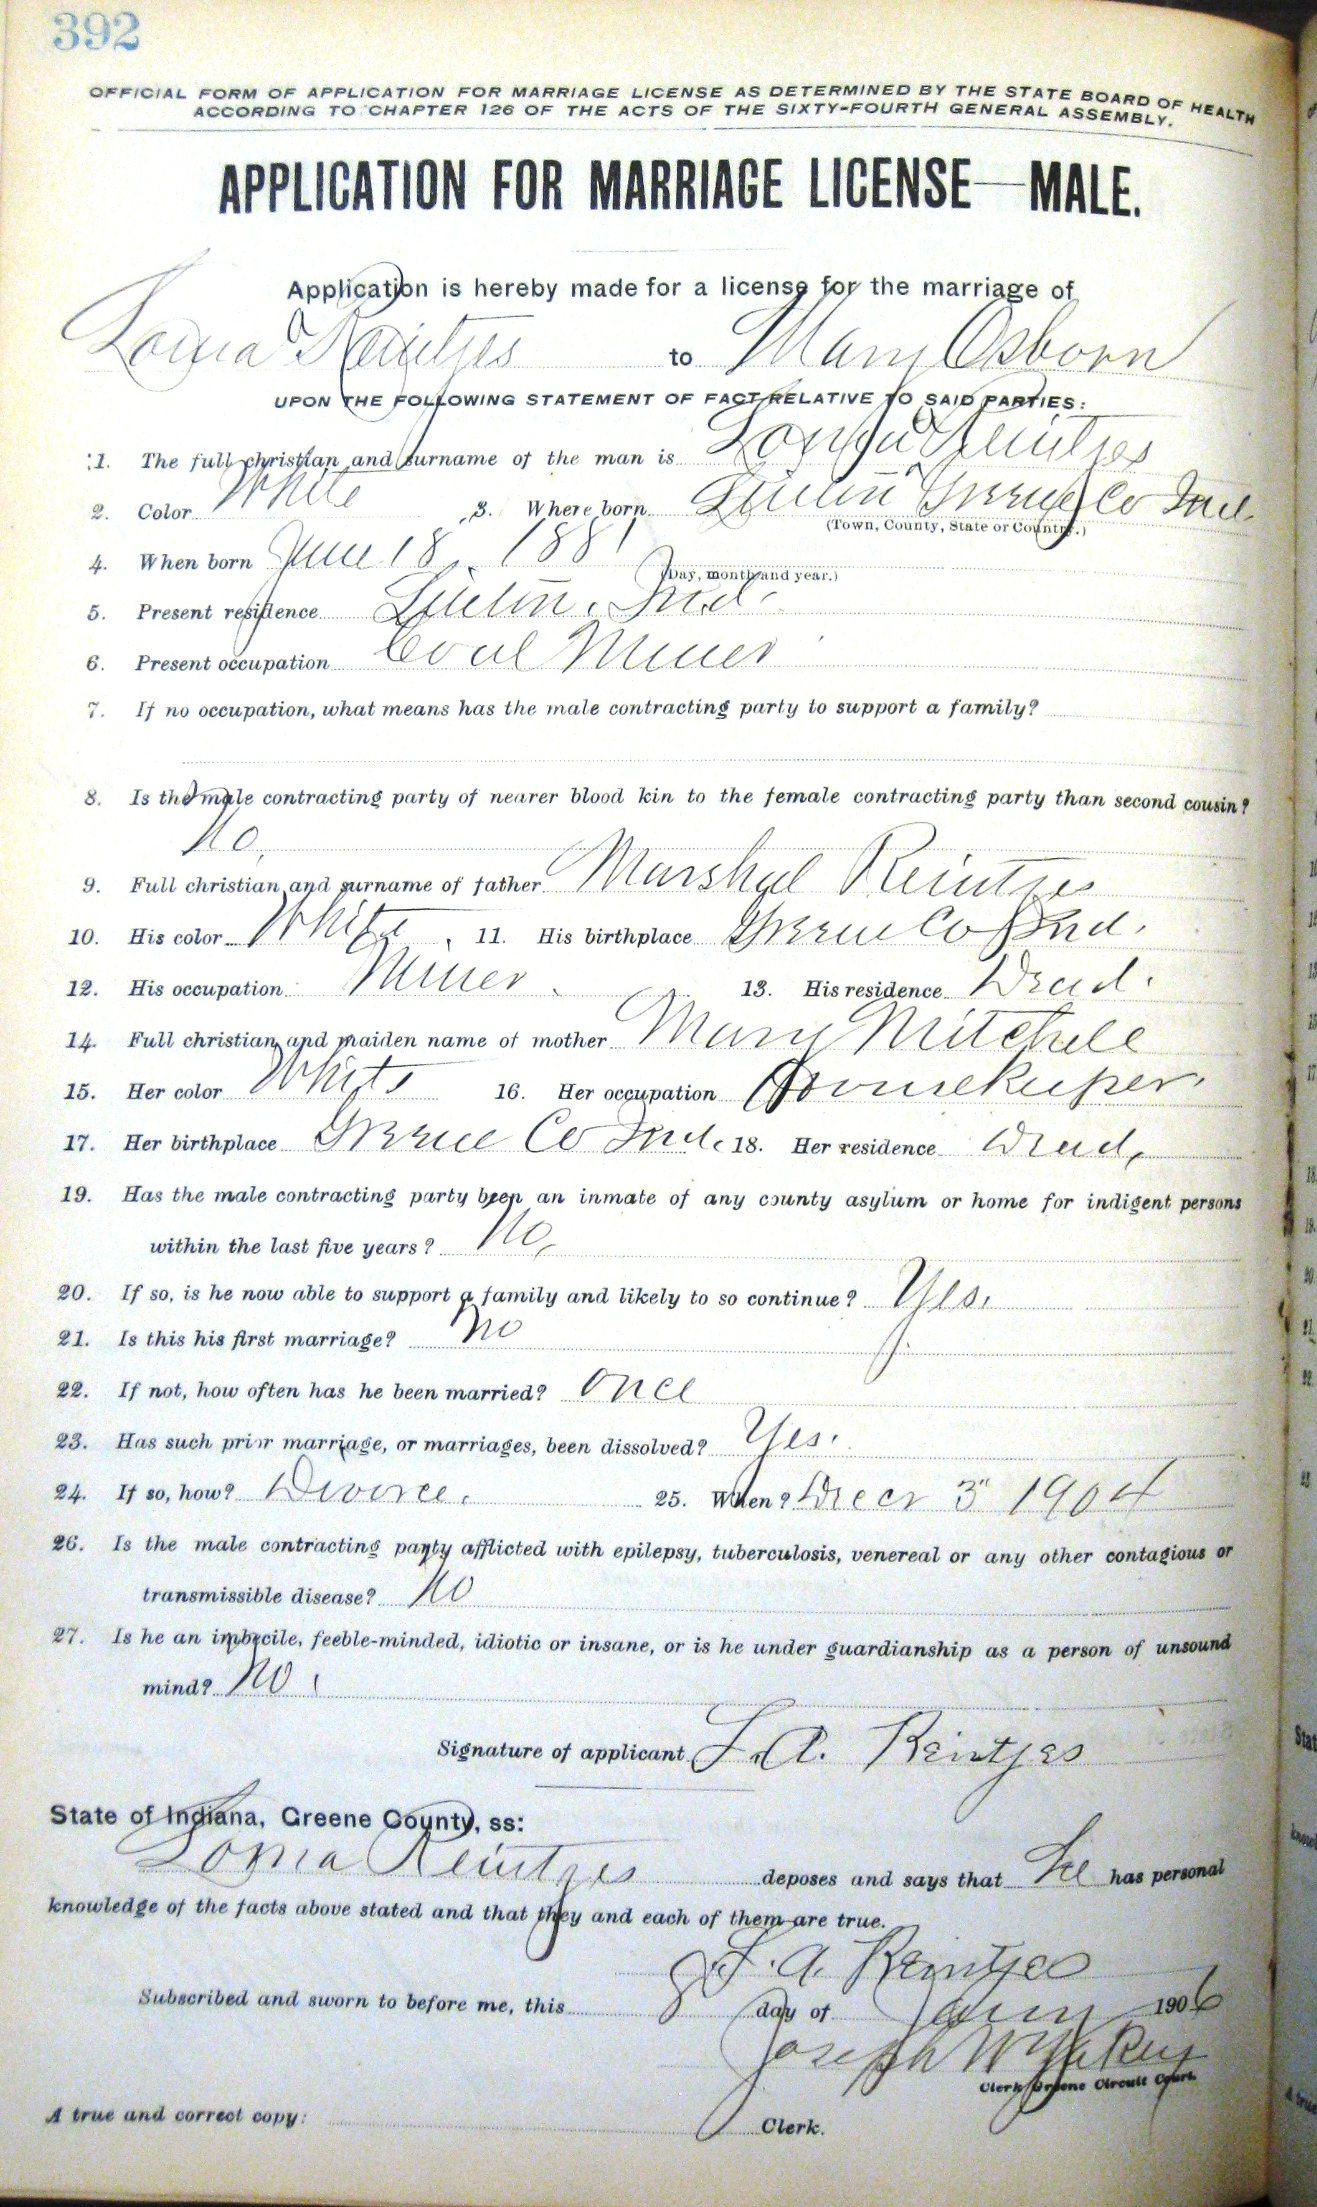 392
OFFICIAL FORM OF APPLICATION FOR MARRIAGE LICENSE AS DETERMINED BY THE STATE BOARD OF HEALTH
ACCORDING TO CHAPTER 126 OF THE ACTS OF THE SIXTY-FOURTH GENERAL ASSEMBLY.
APPLICATION FOR MARRIAGE LICENSE—MALE.
Application is hereby made for a license for the marriage of
Loma Reintjes to Mary Osborn
UPON THE FOLLOWING STATEMENT OF FACT RELATIVE TO SAID PARTIES:
1. The full christian and surname of the man is Reintjes
2. Color White 3. Where born Linton Greene Co Ind.
(Town, County, State or Country.)
4. When born June 18, 1881
(Day, month and year.)
5. Present residence Linton, Ind.
6. Present occupation Coal Miner
7. If no occupation, what means has the male contracting party to support a family?
8. Is the male contracting party of nearer blood kin to the female contracting party than second cousin?
No.
9. Full christian and surname of father Marshal Reintjes
10. His color White. 11. His birthplace Greene Co Ind.
12. His occupation Miner. 13. His residence Dead.
14. Full christian and maiden name of mother Mary Mitchell
15. Her color White 16. Her occupation Housekeeper.
17. Her birthplace Greene Co Ind. 18. Her residence Dead,
19. Has the male contracting party been an inmate of any county asylum or home for indigent persons
within the last five years? No,
20. If so, is he now able to support a family and likely to so continue? Yes.
21. Is this his first marriage? No
22. If not, how often has he been married? Once
23. Has such prior marriage, or marriages, been dissolved? Yes.
24. If so, how? Divorce. 25. When? 3" 1904
26. Is the male contracting party afflicted with epilepsy, tuberculosis, venereal or any other contagious or
transmissible disease? No
27. Is he an imbecile, feeble-minded, idiotic or insane, or is he under guardianship as a person of unsound
mind? No.
Signature of applicant L. A. Reintjes
State of Indiana, Greene County, ss:
Loma Reintjes deposes and says that he has personal
knowledge of the facts above stated and that they and each of them are true.
L. A. Reintjes
Subscribed and sworn to before me, this 8 day of Jany 1906
Joseph W Yakey
Clerk Greene Circuit Court.
A true and correct copy: Clerk.